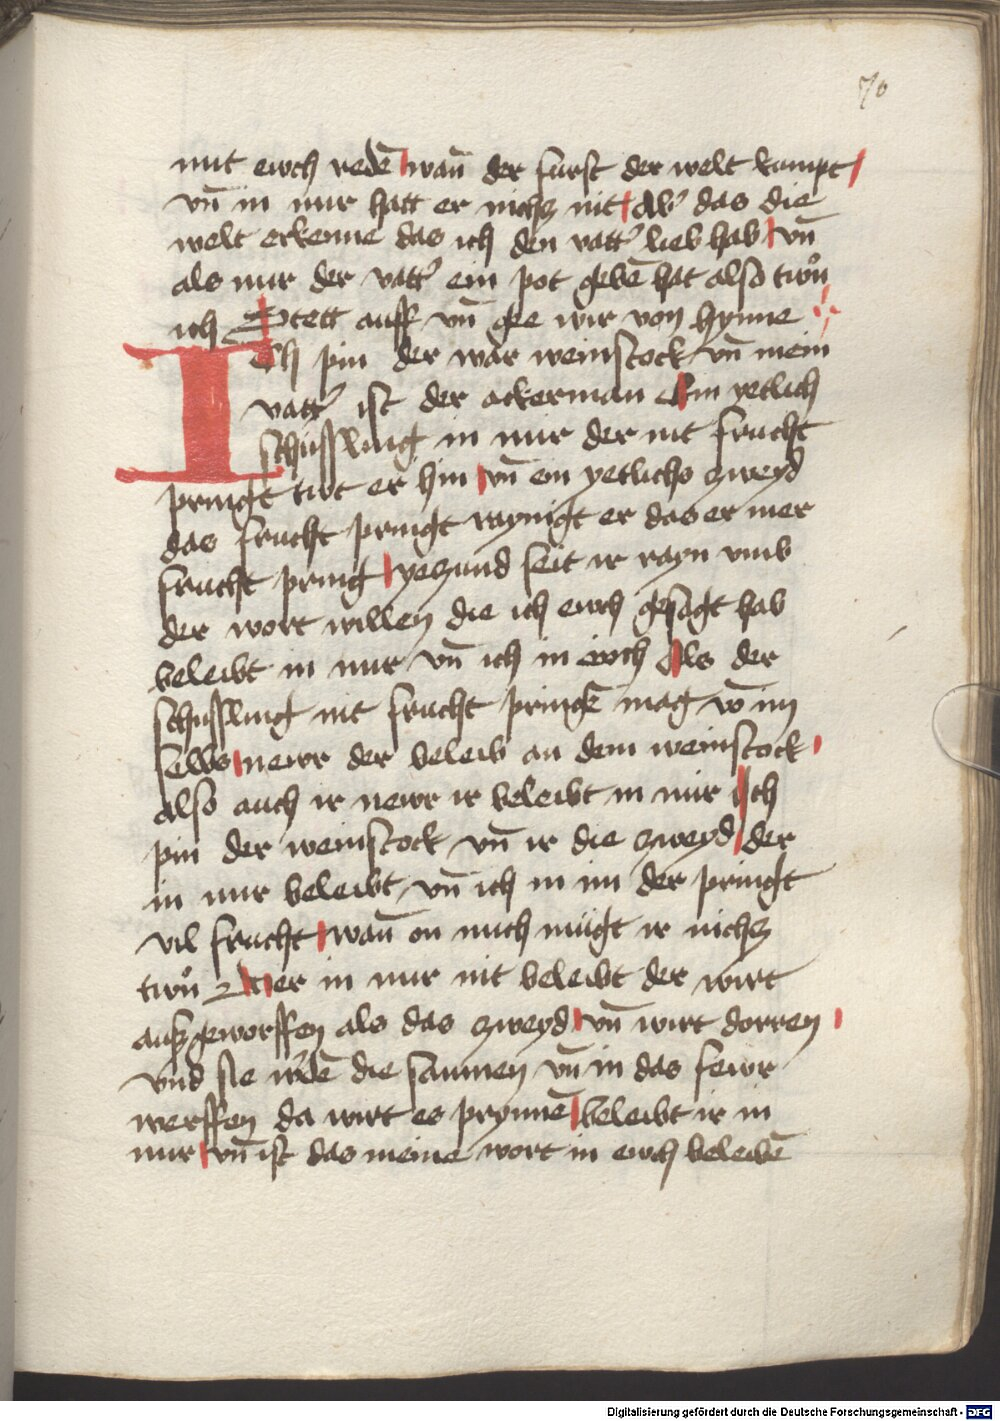 70
mit ewch redē wañ der furst der welt kumpt
vñ in mir hatt er nichcz nit Ab' das die
welt erkenne das ich den vatt' lieb hab vñ
als mir der vatt' ein pot gebē hat also twn
ich Stett auff vñ gee wir von hynne
Ich pin der war weinstock vñ mein
vatt' ist der ackerman Ein yetlich
schüssling in mir der nit frucht
pringt twt er hin vñ ein yetlichs zweyd
das frucht pringt raynigt er das er mer
frucht pring yeczund seit ir rayn vmb
der wort willen die ich ewch gesagt hab
beleibt in mir vñ ich in ewch Als der
schussling nit frucht pringē mag vō im
selbs newr der beleib an dem weinstock
also auch ir newr ir beleibt in mir Ich
pin der weinstock vñ ir die zweyd der
in mir beleibt vñ ich in im der pringt
vil frucht wañ on mich mügt ir nichcz
twn Wer in mir nit beleibt der wirt
auszgeworffen als das zweyd vñ wirt dorren
vnd sie w'dē die samnen vñ in das fewr
werffen da wirt es prynnē beleibt ir in
mir vñ ist das meine wort in ewch beleibē
Digitalisierung gefördert durch die Deutsche Forschungsgemeinschaft - DFG